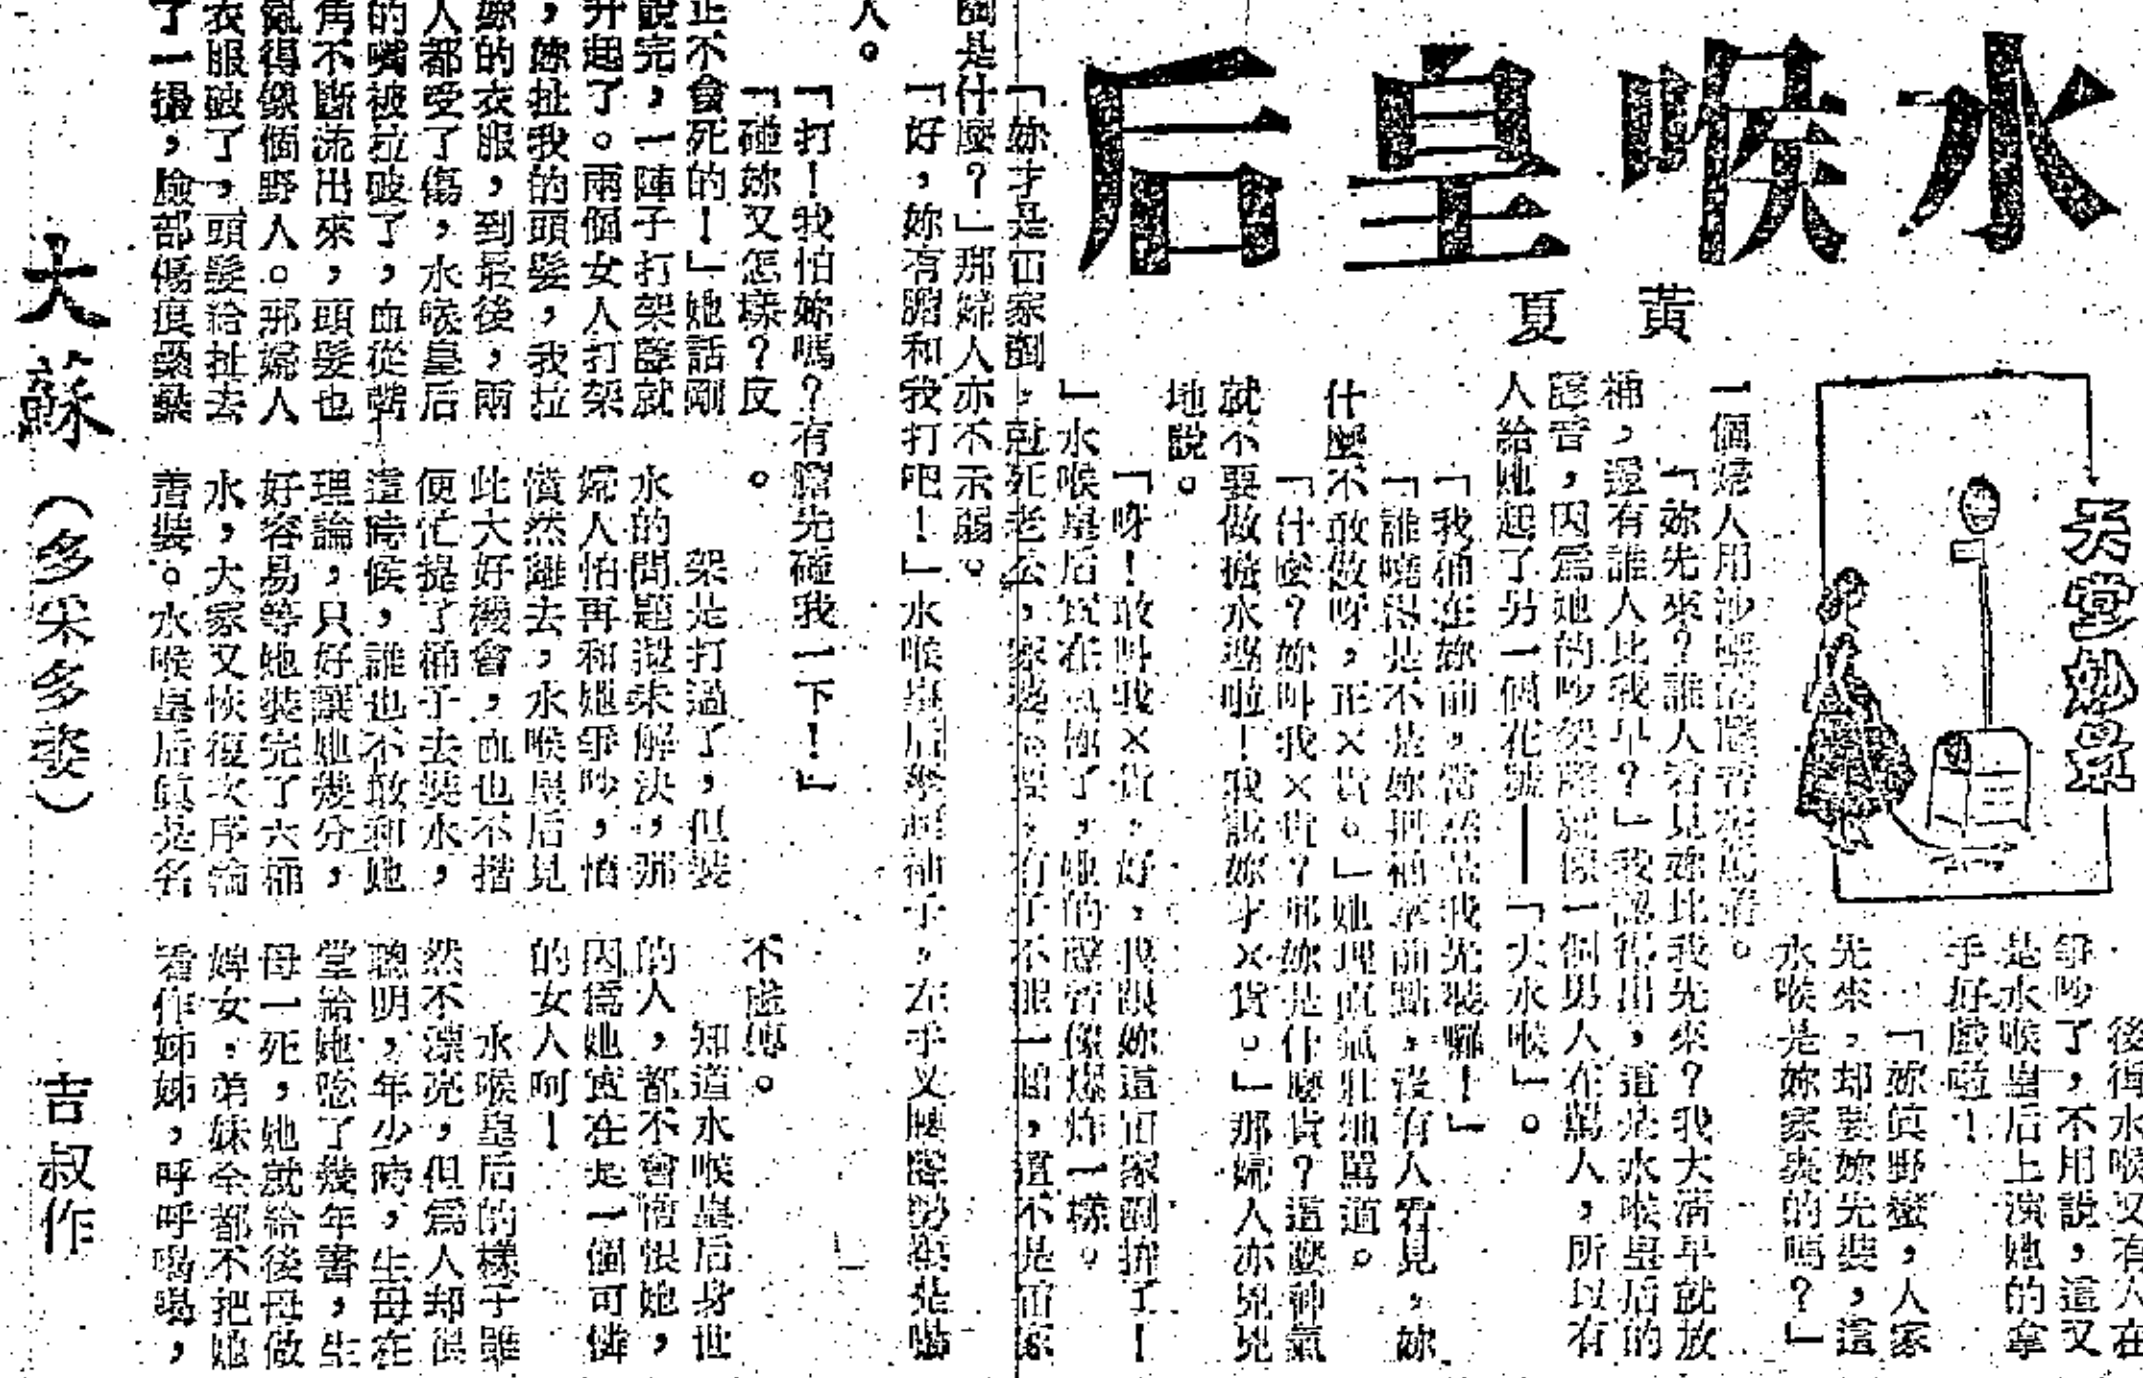 水喉皇后
黃夏
天堂妙景
後街水喉又有人在
爭吵了,不用說,這又
是水喉皇后上演她的拿
手好戲啦!
「妳真野蠻,人家
先來,却要妳先裝,這
水喉是妳家裏的嗎?」
一個婦人用沙啞的聲音在罵着。
「妳先來?誰人看見妳比我先來?我大清早就放
桶,還有誰人比我早?」我認得出,這是水喉皇后的
聲音,因爲她的吵架聲就像一個男人在罵人,所以有
人給她起了另一個花號——「大水喉」。
「我桶在妳前,當然是我先裝囉!」
「誰曉得是不是妳把桶拿前點,沒有人看見,妳
什麼不敢做呀,正×貨。」她理直氣壯地罵道。
「什麼?妳叫我×貨?那妳是什麼貨?這麼神氣
就不要做搶水婆啦!我說妳才×貨。」那婦人亦兇兇
地說。
「呀!敢叫我×貨,好,我跟妳這冚家剷拚了!
」水喉皇后實在氣極了,她的聲音像爆炸一樣。
「妳才是冚家剷,尅死老公,家婆,有了不眼一個,這不是冚家
剷是什麼?」那婦人亦不示弱。
「好,妳有膽和我打吧!」水喉皇后捲起袖子,左手叉腰,是嚇
人。
「打!我怕妳嗎?有膽先碰我一下!」
「碰妳又怎樣?反
正不會死的!」她話剛
說完,一陣子打架聲就
升起了。兩個女人打架
,妳扯我的頭髮,我拉
妳的衣服,到最後,兩
人都受了傷,水喉皇后
的嘴被拉破了,血從嘴
角不斷流出來,頭髮也
亂得像個野人。那婦人
衣服破了,頭髮給扯去
了一撮,臉部傷痕纍纍
。
架是打過了,但裝
水的問題還未解決,那
婦人怕再和她爭吵,憤
憤然離去,水喉皇后見
此大好機會,血也不揩
便忙提了桶子去裝水,
這時候,誰也不敢和她
理論,只好讓她幾分,
好容易等她裝完了六桶
水,大家又恢復次序輪
着裝。水喉皇后眞是名
不虛傳。
知道水喉皇后身世
的人,都不會憎恨她,
因爲她實在是一個可憐
的女人呵!
水喉皇后的樣子雖
然不漂亮,但爲人却很
聰明,年少時,生母在
堂給她唸了幾年書,生
母一死,她就給後母做
婢女,弟妹全都不把她
看作姊姊,呼呼喝喝,
大蘇(多采多姿)
吉叔作